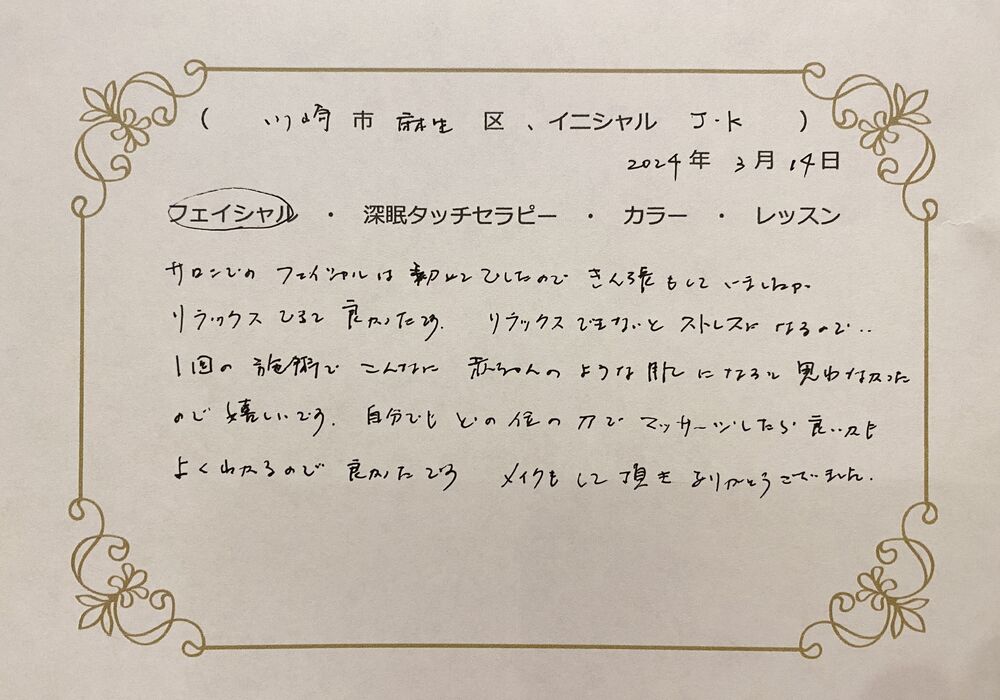 ( 川崎 市 麻生 区 、イニシャル J・K )
2024年 3月 14日
フェイシャル ・ 深眠タッチセラピー ・ カラー ・ レッスン
サロンでの フェイシャルは 初めてでしたので きん張もしていましたが
リラックス できて 良かったです. リラックス できないと ストレスに なるので‥
1回の 施術で こんなに 赤ちゃんの ような 肌 に なると 思わなかった
ので 嬉しいです. 自分でも どの 位の 力で マッサージしたら 良いかも
よくわかるので 良かったです メイクも して 頂き ありがとうございました.